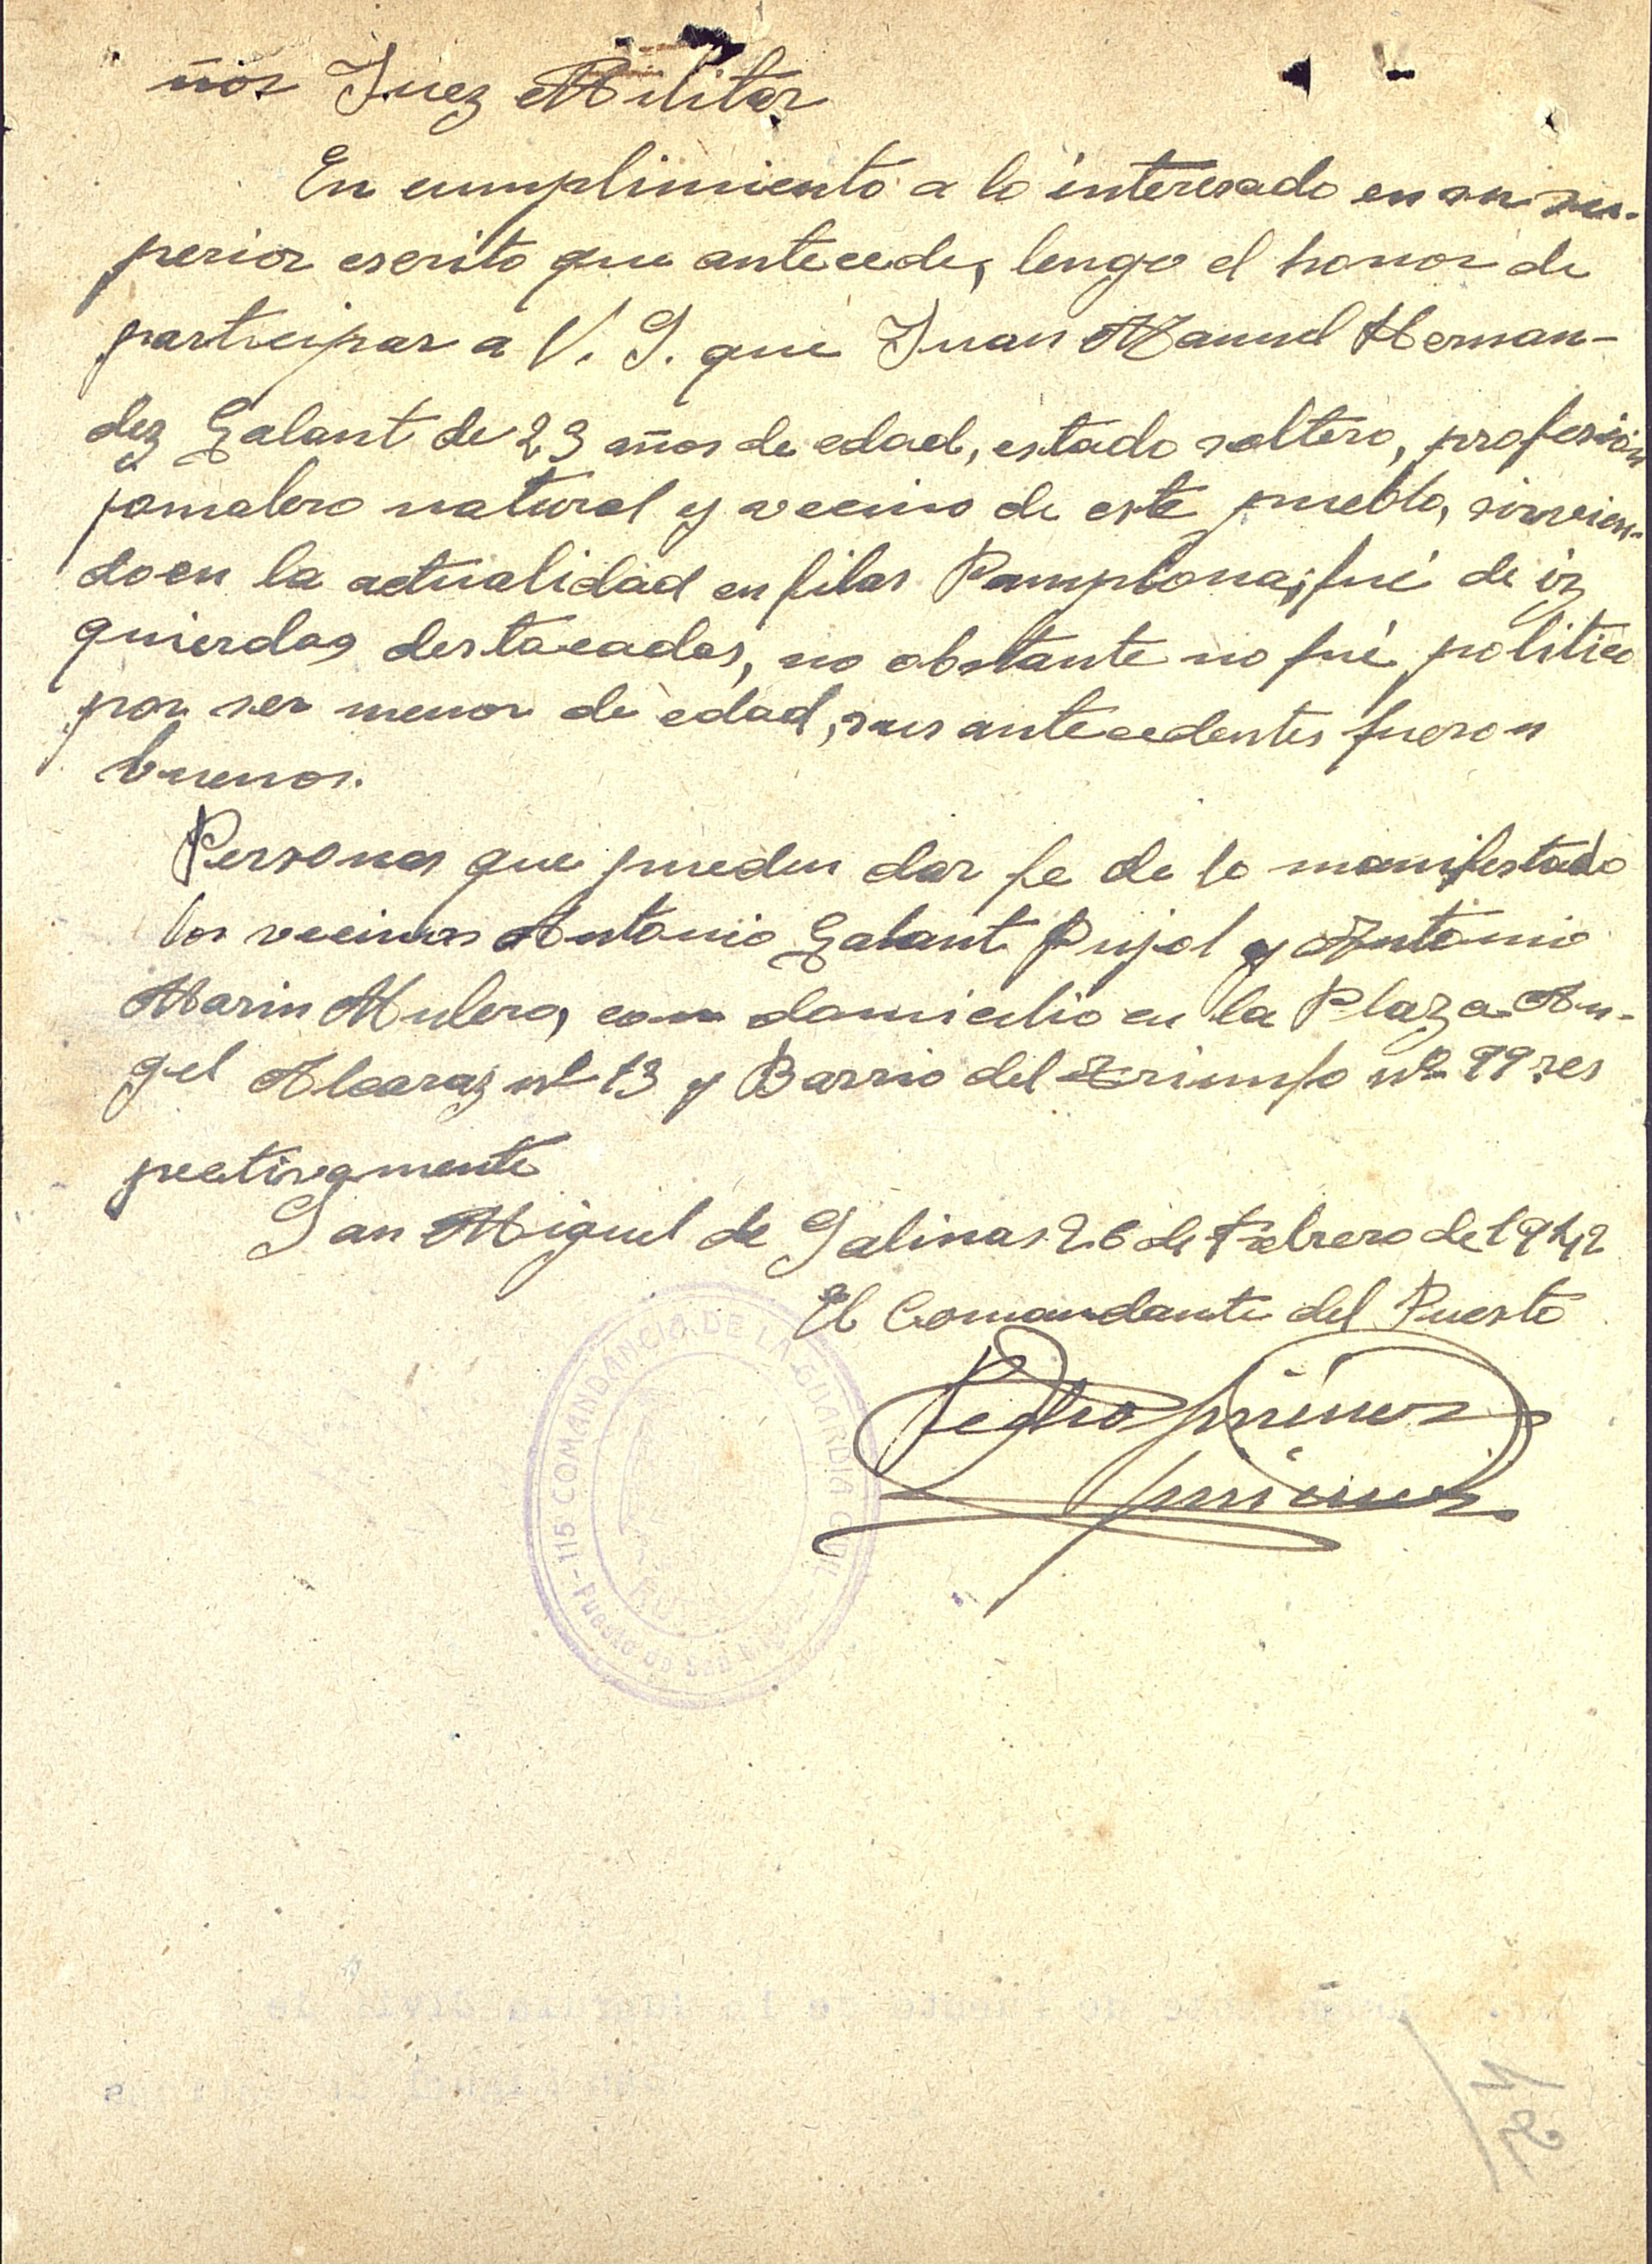 ñor Juez Militar
En cumplimiento a lo interesado en su su-
perior escrito que antecede, tengo el honor de
participar a V. S. que Juan Manuel Hernan-
dez Galant de 23 años de edad, estado soltero, profesión
jornalero natural y vecino de este pueblo, sirvien-
do en la actualidad en filas Pamplona, fué de iz
quierdas destacadas, no obstante no fué politico
por ser menor de edad, sus antecedentes fueron
buenos.
Personas que pueden dar fe de lo manifestado
los vecinos Antonio Galant Pujol y Antonio
Marin Mulero, con domicilio en la Plaza An-
gel Alcaraz nº 13 y Barrio del Triunfo nº 99 res
pectivamente
San Miguel de Salinas 26 de Febrero de 1942
El Comandante del Puesto
Pedro Jiménez
Jiménez
115 COMANDANCIA DE LA GUARDIA CIVIL
Puesto de San Miguel